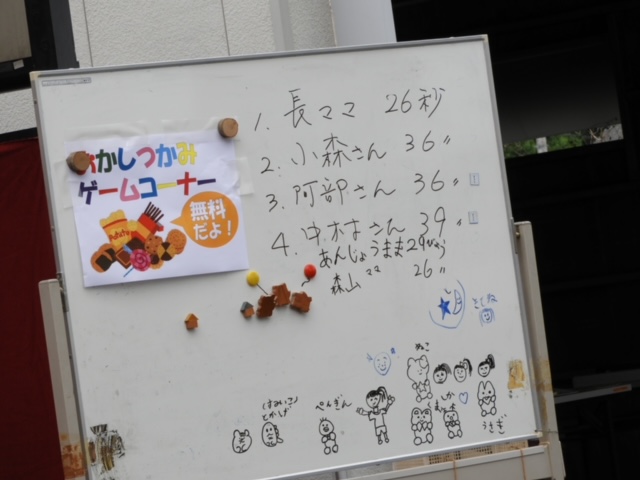 1. 長ママ 26秒
2. 小森さん 36〃
3. 阿部さん 36〃
4. 中村さん 39〃
あんじょうまま29びょう
森山ママ 26〃
おかしつかみ
ゲームコーナー
無料
だよ!
ねこ
しか
ぺんぎん
とかげ
うさぎ